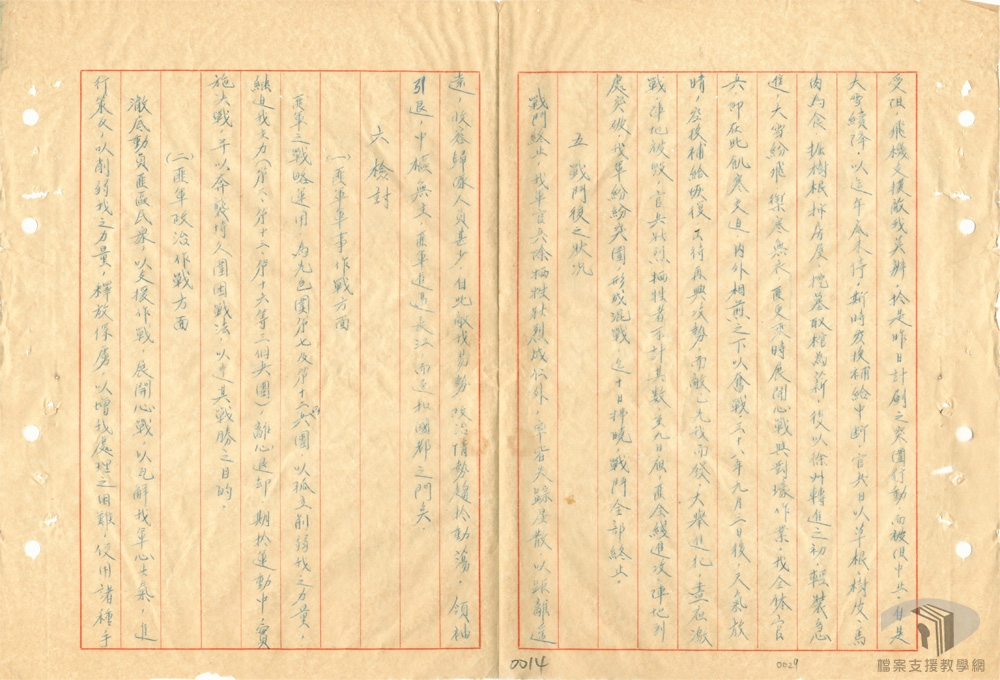 受阻，飛機支援敵我莫辨，於是昨日計劃之突圍行動，而被限中共。自是
大雪續降，以迄年底未停，斯時爾後補給中斷，官兵日以草根、樹皮、馬
肉為食，掘樹根、拆房屋、挖墓取棺為薪，後以徐州轉進之初，輕裝急
進，大雪紛飛，禦寒無衣，匪更乘時展開心戰與對壕作業，我全体官
兵即在此飢寒交迫，內外相煎之下以奮戰三十八年九月三日後，天氣放
晴，空投補給恢復，只待再興攻勢，而敵已先我而發，大舉進扎，盡在激
戰，陣地被毀，官兵壯烈犧牲者不計其數，至九日夜，匪全綫進攻，陣地到
處突破，我軍紛紛突圍，形成混戰，迄十日拂曉，戰鬥全部終止。
五 戰鬥後之狀況
戰鬥終止，我軍官兵除犧牲壯烈成仁外，率皆失踪潰散，以距離遙
遠，收容歸隊人員甚少，自此敵我易勢，政治情勢趨於動蕩，領袖
引退，中樞無主，匪軍進逼長江，而迫扣國都之門矣。
六 檢討
(一) 匪軍軍事作戰方面
匪軍之戰略運用，為先包圍第七及第十二兵團，以孤立削弱我之力量，
繼逼我主力（第二、第十三、第十六等三個兵團），離心退却，期於運動中，實
施大戰，予以奔襲持久圍困戰法，以達其戰勝之目的。
(二) 匪軍政治作戰方面
澈底動員匪區民眾，以支援作戰，展開心戰，以瓦解我軍心士氣，進
行策反，以削弱我之力量，釋放俘虜，以增我處理之困難，使用諸種手
0014
0029
檔案支援教學網